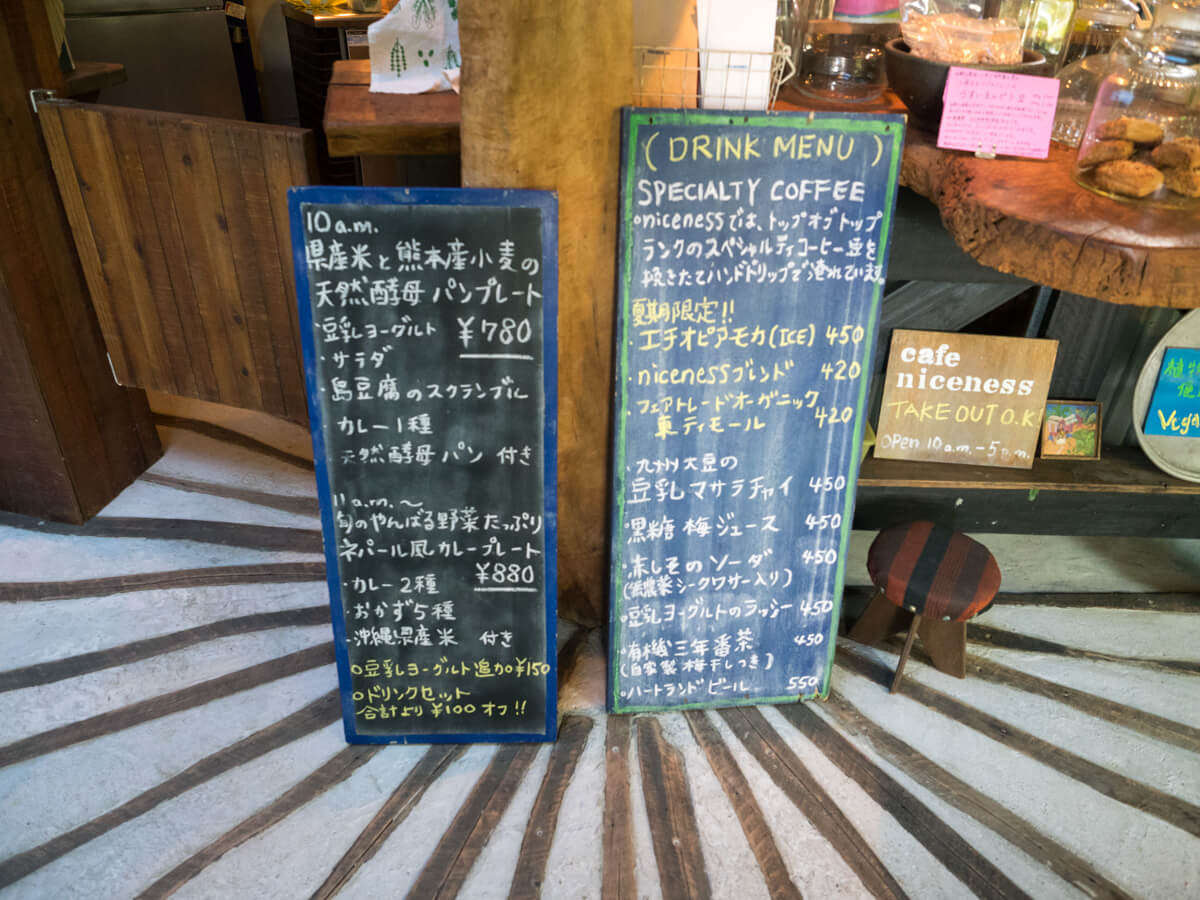 10 a.m.
県産米と熊本産小麦の
天然酵母 パンプレート
・豆乳ヨーグルト ¥780
・サラダ
・島豆腐のスクランブル
・カレー1種
天然酵母パン 付き
11 a.m. ～
旬のやんばる野菜たっぷり
ネパール風カレープレート
・カレー2種 ¥880
・おかず5種
・沖縄県産米 付き
○豆乳ヨーグルト追加¥150
○ドリンクセット
合計より ¥100 オフ!!
(DRINK MENU)
SPECIALTY COFFEE
○nicenessでは、トップオブトップ
ランクのスペシャルティコーヒー豆を
挽きたてハンドドリップで淹れています。
夏期限定!!
・エチオピアモカ(ICE) 450
・nicenessブレンド 420
・フェアトレードオーガニック
東ティモール 420
・九州大豆の
豆乳マサラチャイ 450
・黒糖 梅ジュース 450
・赤しそのソーダ 450
(無農薬シークワサー入り)
・豆乳ヨーグルトのラッシー 450
・有機三年番茶 450
(自家製 梅干しつき)
○ハートランドビール 550
cafe
niceness
TAKE OUT O.K
open 10 a.m. - 5 a.m.
Vega